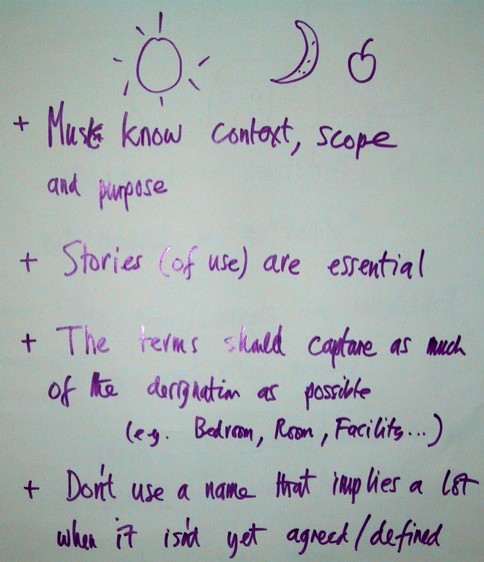 + Must know context, scope
and purpose
+ Stories (of use) are essential
+ The terms should capture as much
of the designation as possible
(e.g. Bedroom, Room, Facility...)
+ Don't use a name that implies a lot
when it isn't yet agreed/defined